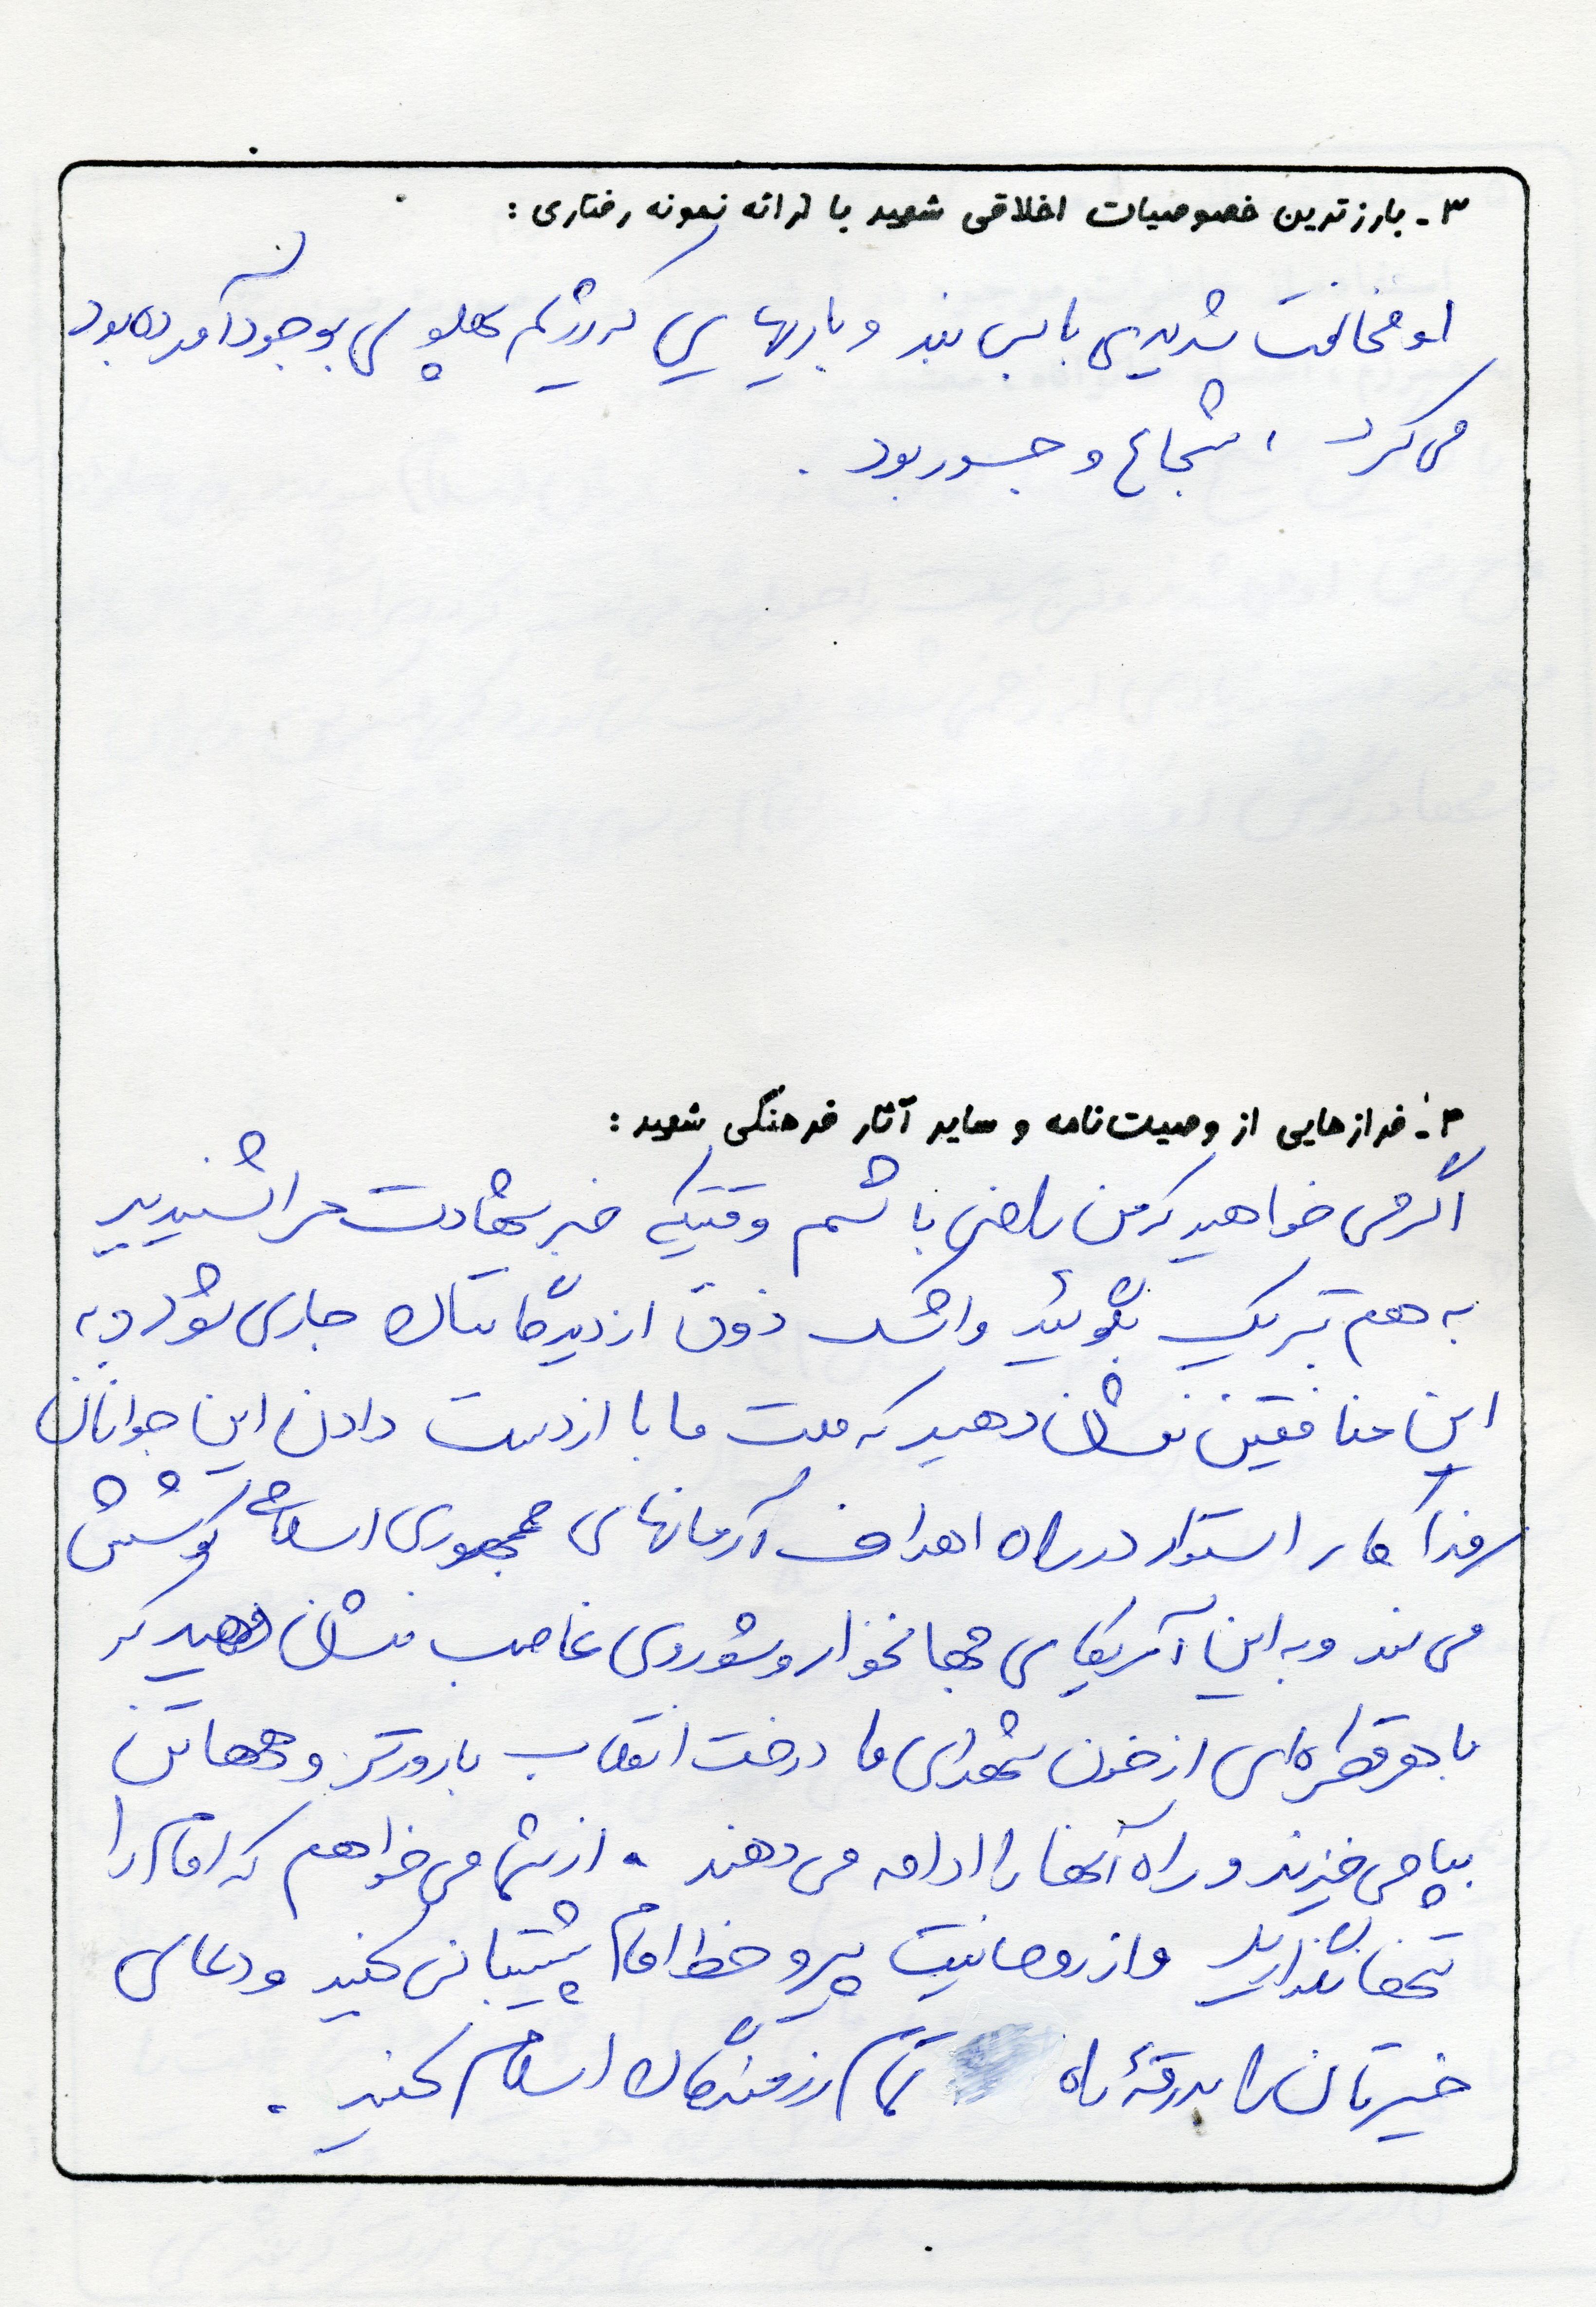 ۳- بارزترین خصوصیات اخلاقی شهید با ارائه نمونه رفتاری :
او مخالفت شدیدی با بی بند و باریهایی که رژیم پهلوی بوجود آورده بود
می کرد ، شجاع و جسور بود .
۴- فرازهایی از وصیت‌نامه و سایر آثار فرهنگی شهید :
اگر می خواهید که من راضی باشم وقتیکه خبر شهادت مرا شنیدید
به هم تبریک بگوئید و اشک ذوق از دیدگانتان جاری شود و به
این منافقین نشان دهید که ملت ما با از دست دادن این جوانان
فداکار استوار در راه اهداف آرمانهای جمهوری اسلامی کوشش
می کند و به این آمریکای جهانخوار و شوروی غاصب نشان دهید که
با هر قطره ای از خون شهدای ما درخت انقلاب بارورتر و
بپا می خیزند و راه آنها را ادامه می دهند . از شما می خواهم که امام را
تنها نگذارید و از روحانیت پیرو خط امام پشتیبانی کنید و دعای
خیرتان را بدرقهٔ راه تمام رزمندگان اسلام کنید .